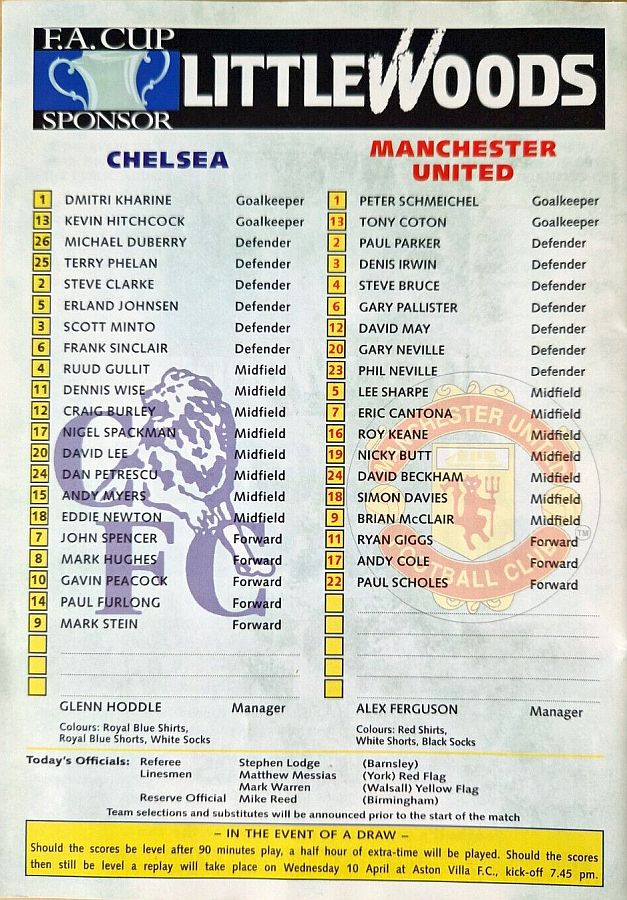 F.A. CUP
SPONSOR
LITTLEWOODS
CHELSEA
1 DMITRI KHARINE Goalkeeper
13 KEVIN HITCHCOCK Goalkeeper
26 MICHAEL DUBERRY Defender
25 TERRY PHELAN Defender
2 STEVE CLARKE Defender
5 ERLAND JOHNSEN Defender
3 SCOTT MINTO Defender
6 FRANK SINCLAIR Defender
4 RUUD GULLIT Midfield
11 DENNIS WISE Midfield
12 CRAIG BURLEY Midfield
17 NIGEL SPACKMAN Midfield
20 DAVID LEE Midfield
24 DAN PETRESCU Midfield
15 ANDY MYERS Midfield
18 EDDIE NEWTON Midfield
7 JOHN SPENCER Forward
8 MARK HUGHES Forward
10 GAVIN PEACOCK Forward
14 PAUL FURLONG Forward
9 MARK STEIN Forward
GLENN HODDLE Manager
Colours: Royal Blue Shirts,
Royal Blue Shorts, White Socks
CFC
MANCHESTER
UNITED
1 PETER SCHMEICHEL Goalkeeper
13 TONY COTON Goalkeeper
2 PAUL PARKER Defender
3 DENIS IRWIN Defender
4 STEVE BRUCE Defender
6 GARY PALLISTER Defender
12 DAVID MAY Defender
20 GARY NEVILLE Defender
23 PHIL NEVILLE Defender
5 LEE SHARPE Midfield
7 ERIC CANTONA Midfield
16 ROY KEANE Midfield
19 NICKY BUTT Midfield
24 DAVID BECKHAM Midfield
18 SIMON DAVIES Midfield
9 BRIAN McCLAIR Midfield
11 RYAN GIGGS Forward
17 ANDY COLE Forward
22 PAUL SCHOLES Forward
ALEX FERGUSON Manager
Colours: Red Shirts,
White Shorts, Black Socks
MANCHESTER UNITED
FOOTBALL CLUB
TM
Today's Officials: Referee Stephen Lodge (Barnsley)
Linesmen Matthew Messias (York) Red Flag
Mark Warren (Walsall) Yellow Flag
Reserve Official Mike Reed (Birmingham)
Team selections and substitutes will be announced prior to the start of the match
– IN THE EVENT OF A DRAW –
Should the scores be level after 90 minutes play, a half hour of extra-time will be played. Should the scores
then still be level a replay will take place on Wednesday 10 April at Aston Villa F.C., kick-off 7.45 pm.